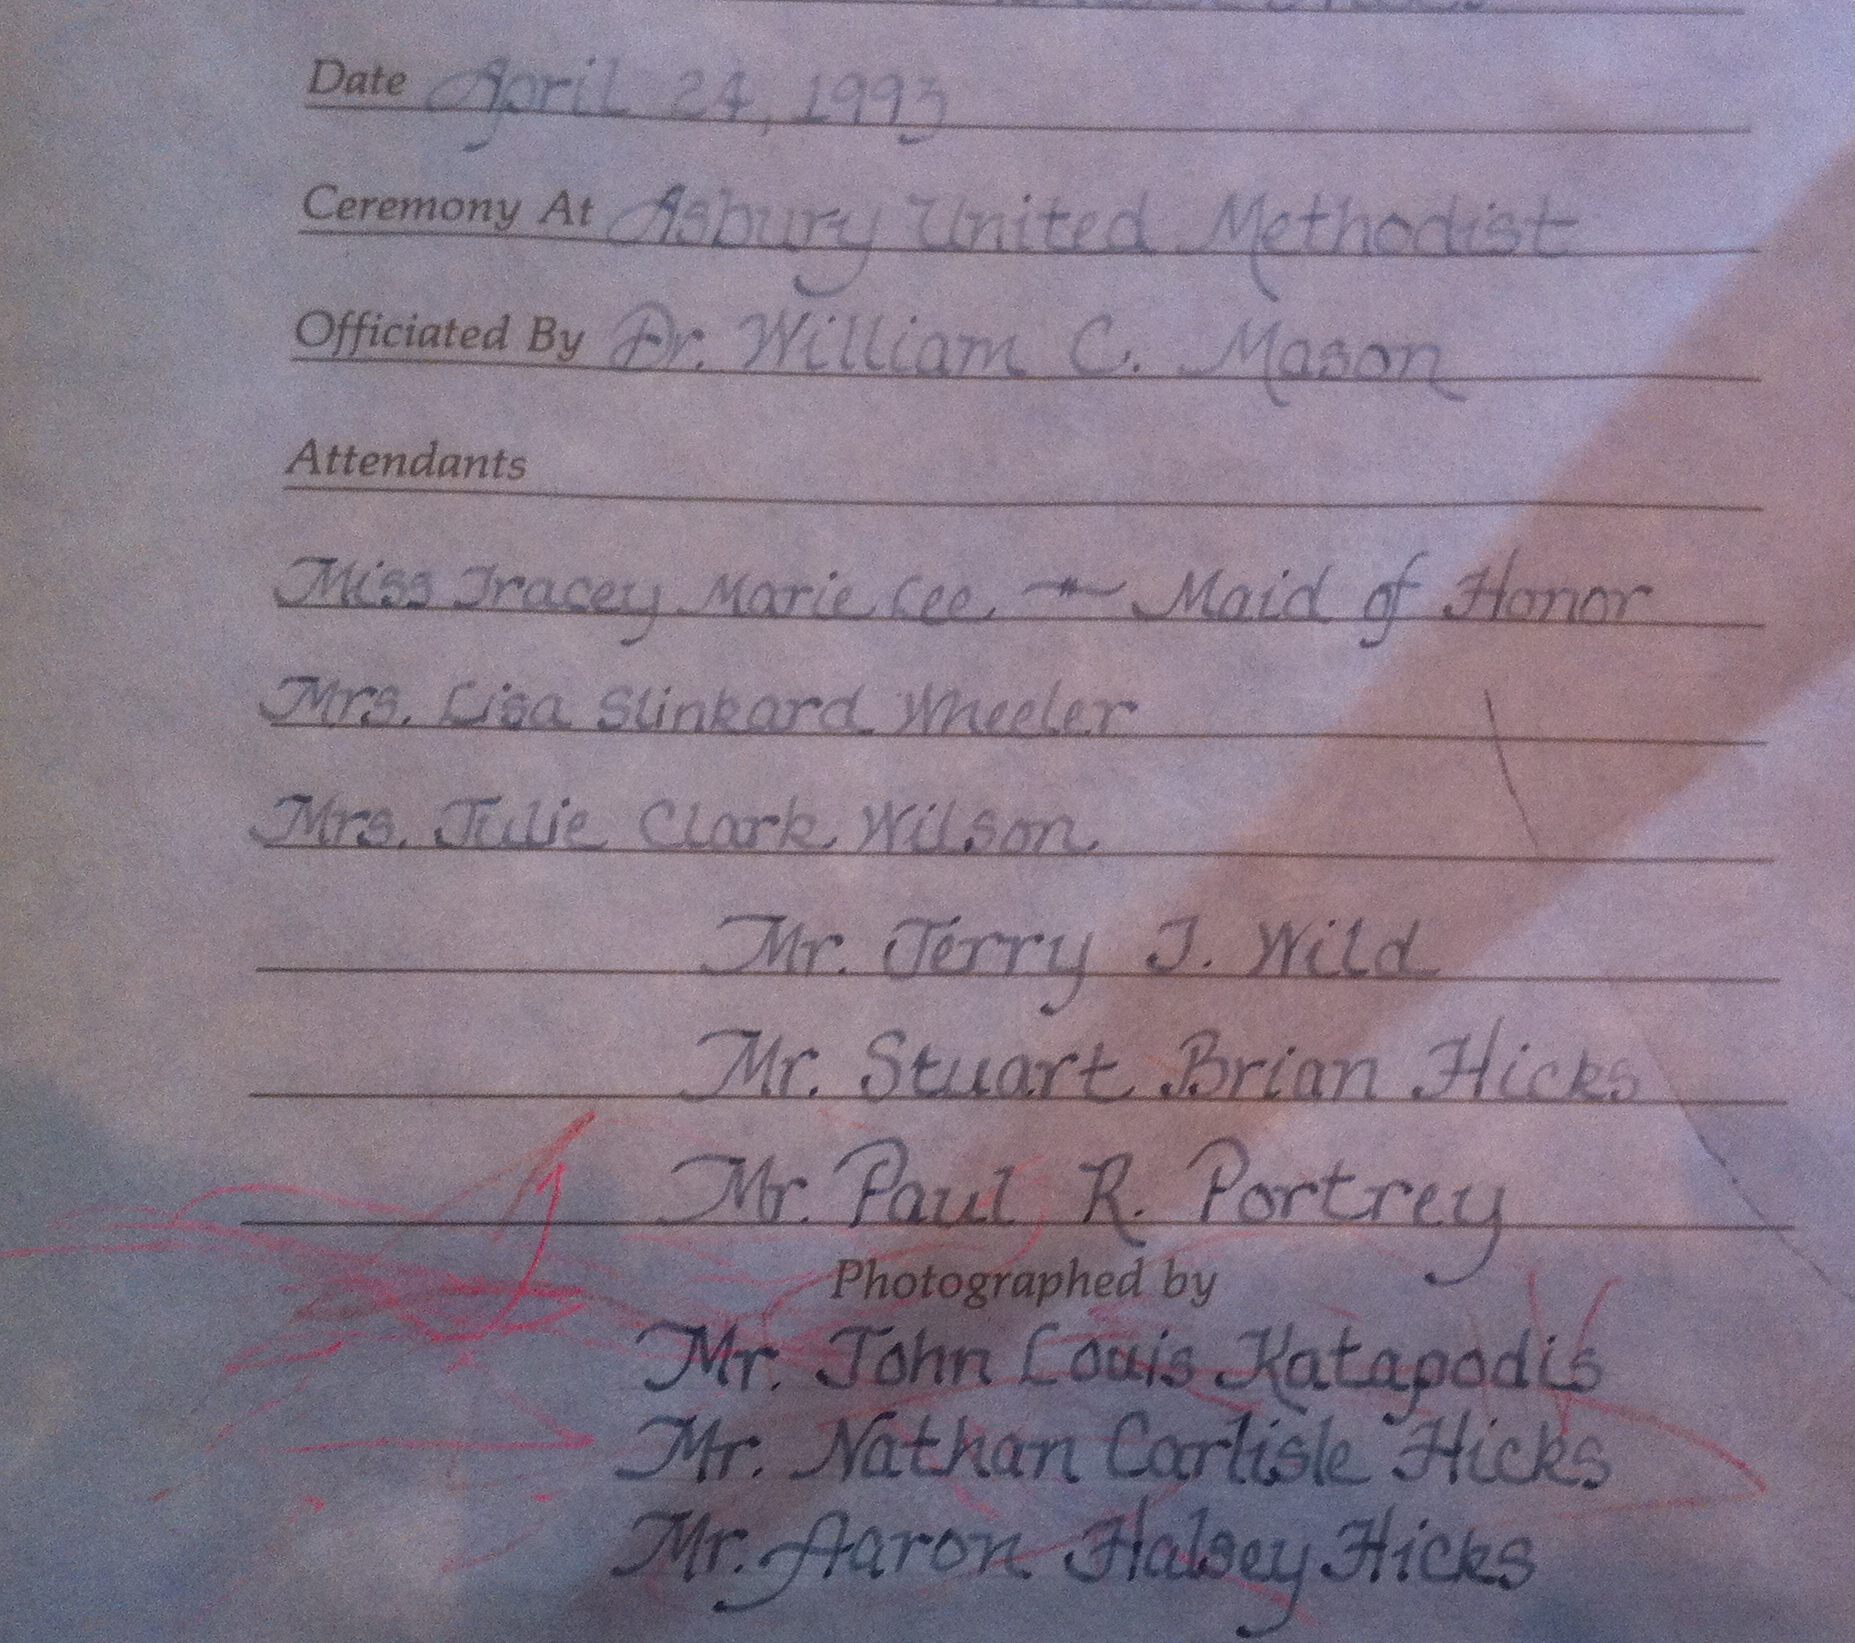 Date April 24, 1993
Ceremony At Asbury United Methodist
Officiated By Dr. William C. Mason
Attendants
Miss Tracey Marie Lee - Maid of Honor
Mrs. Lisa Slinkard Wheeler
Mrs. Julie Clark Wilson
Mr. Jerry J. Wild
Mr. Stuart Brian Hicks
Mr. Paul R. Portrey
Photographed by
Mr. John Louis Katapodis
Mr. Nathan Carlisle Hicks
Mr. Aaron Halsey Hicks